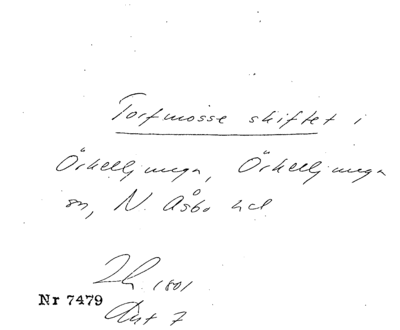 Torfmosse skiftet i
Örkelljunga, Örkelljunga
sn, N. Åsbo hd
1801
Nr 7479